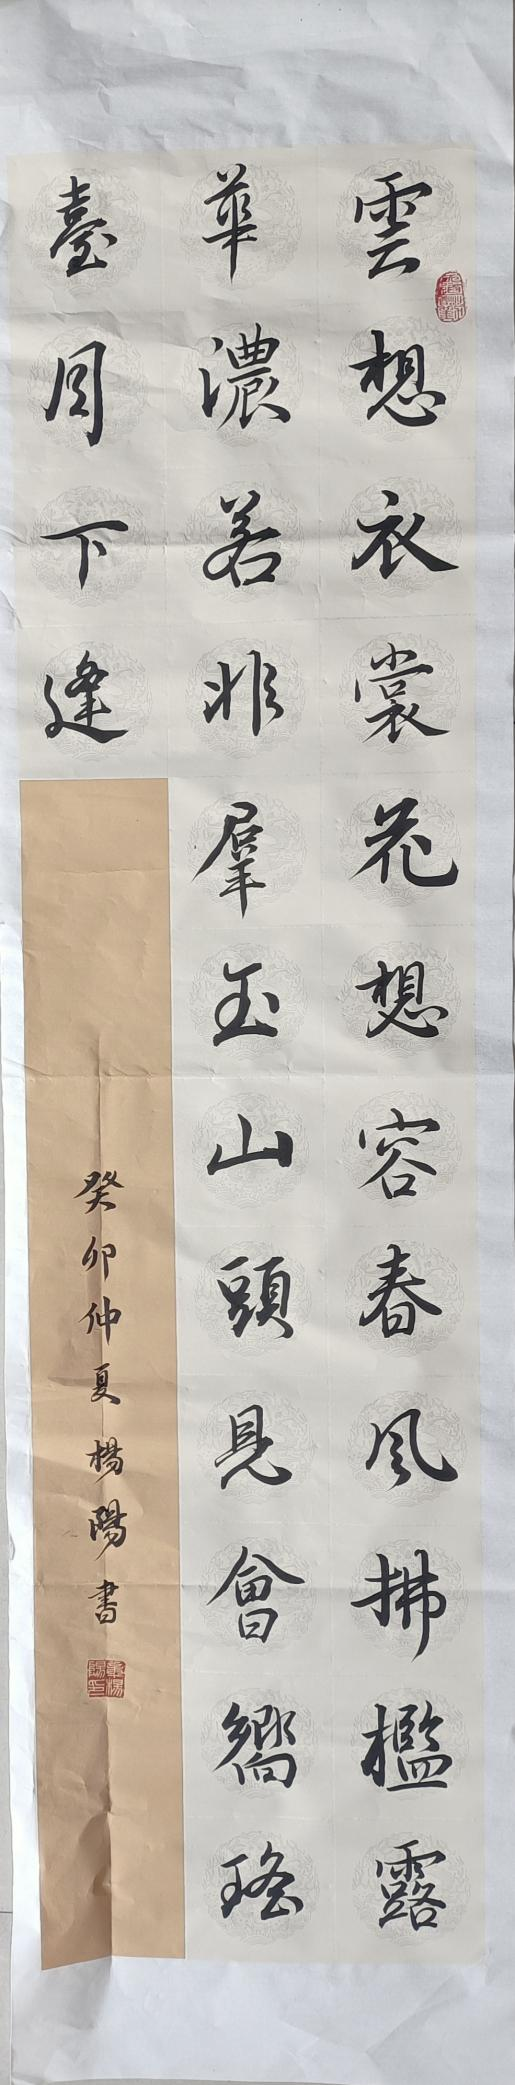 雲想衣裳花想容春風拂檻露
華濃若非羣玉山頭見會嚮瑤
臺月下逢
癸卯仲夏楊陽書